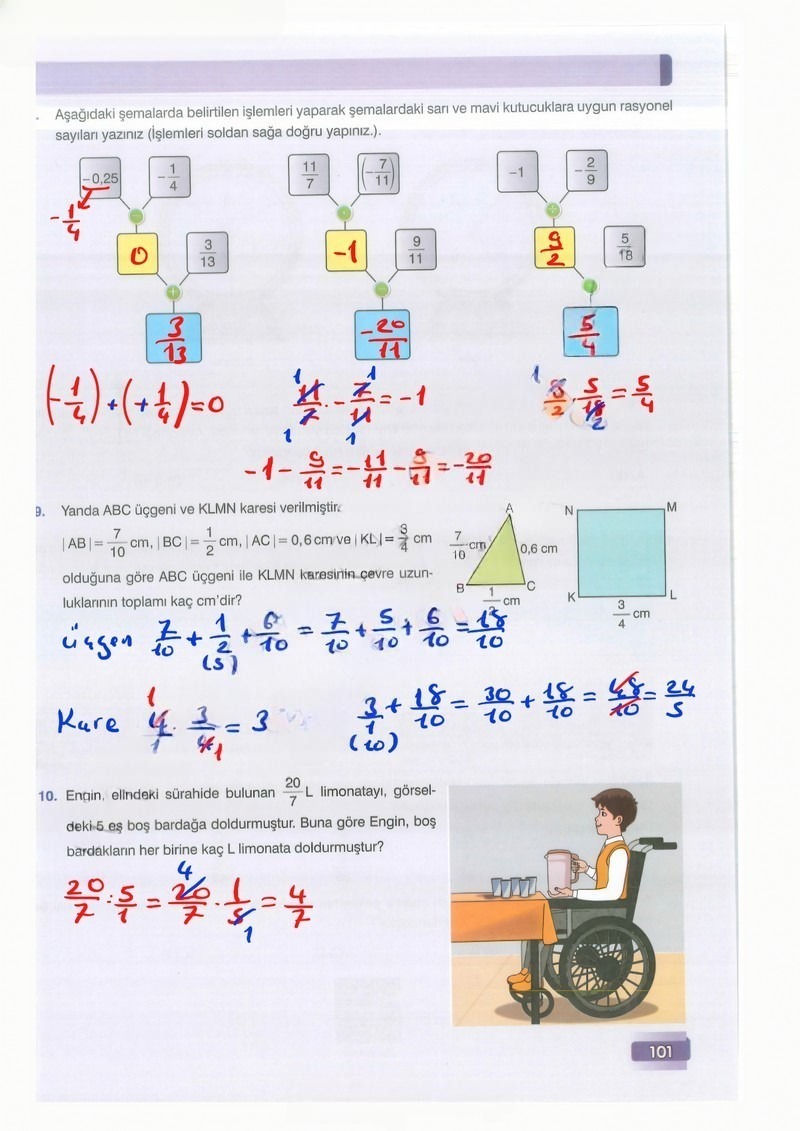 . Aşağıdaki şemalarda belirtilen işlemleri yaparak şemalardaki sarı ve mavi kutucuklara uygun rasyonel
sayıları yazınız (İşlemleri soldan sağa doğru yapınız.).
-0,25 -1/4 11/7 (-7/11) -1 -2/9
-1/4
0 3/13 -1 9/11 9/2 5/18
3/13 -20/11 5/4
(-1/4)+(+1/4)=0 11/7 · -7/11 = -1 9/2 · 5/18 = 5/4
-1 - 9/11 = -11/11 - 9/11 = -20/11
9. Yanda ABC üçgeni ve KLMN karesi verilmiştir.
|AB| = 7/10 cm, |BC| = 1/2 cm, |AC| = 0,6 cm ve |KL| = 3/4 cm
olduğuna göre ABC üçgeni ile KLMN karesinin çevre uzun-
luklarının toplamı kaç cm'dir?
A N M
7/10 cm 0,6 cm
B C K L
1/2 cm 3/4 cm
üçgen 7/10 + 1/2 + 6/10 = 7/10 + 5/10 + 6/10 = 18/10
(5)
Kare 4/1 · 3/4 = 3 3/1 + 18/10 = 30/10 + 18/10 = 48/10 = 24/5
(10)
10. Engin, elindeki sürahide bulunan 20/7 L limonatayı, görsel-
deki 5 eş boş bardağa doldurmuştur. Buna göre Engin, boş
bardakların her birine kaç L limonata doldurmuştur?
20/7 : 5/1 = 20/7 · 1/5 = 4/7
101